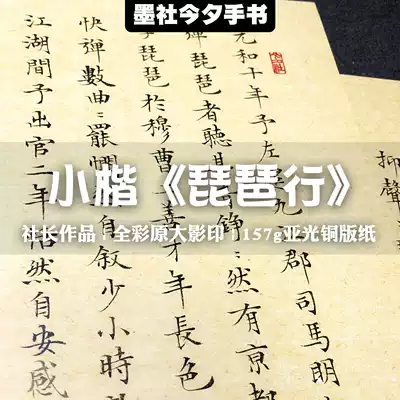 墨社今夕手书
小楷《琵琶行》
社长作品 | 全彩原大影印 | 157g亚光铜版纸
抑聲
元和十年予左遷九江郡司馬明
彈琵琶者聽其音錚〻然有京都
學琵琶於穆曹二善才年長色
快彈數曲〻罷憫然自叙少小時
江湖間予出官二年恬然自安感